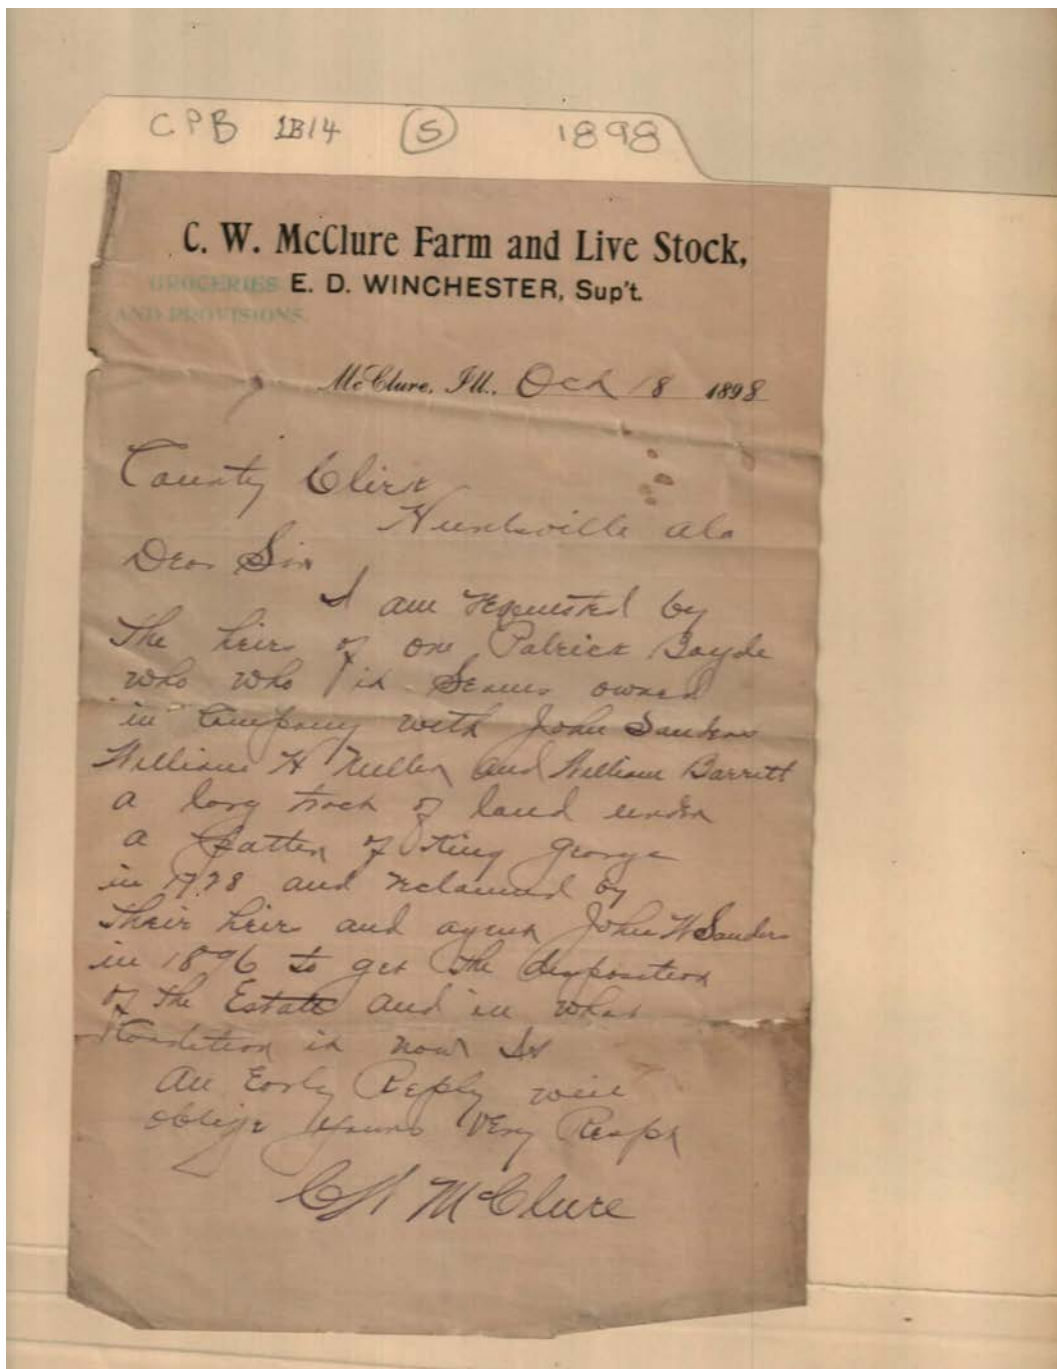 CPB 1B14 S 1898
C. W. McClure Farm and Live Stock,
GROCERIES E. D. WINCHESTER, Sup't.
AND PROVISIONS.
McClure, Ill., Oct 18 1898
County Clirk
Huntsville Ala
Dear Sir
I am requested by
The heirs of one Patrick Boyde
who who it Seams owned
in Company with John Sanders
William H Miller and William Barrett
a larg track of land under
a patten of King George
in 1778 and reclaimed by
Their heirs and agent John W Sanders
in 1896 to get the disposition
of the Estate and in what
Condition it now Is
An Early Reply will
oblige yours Very Respt
CW McClure